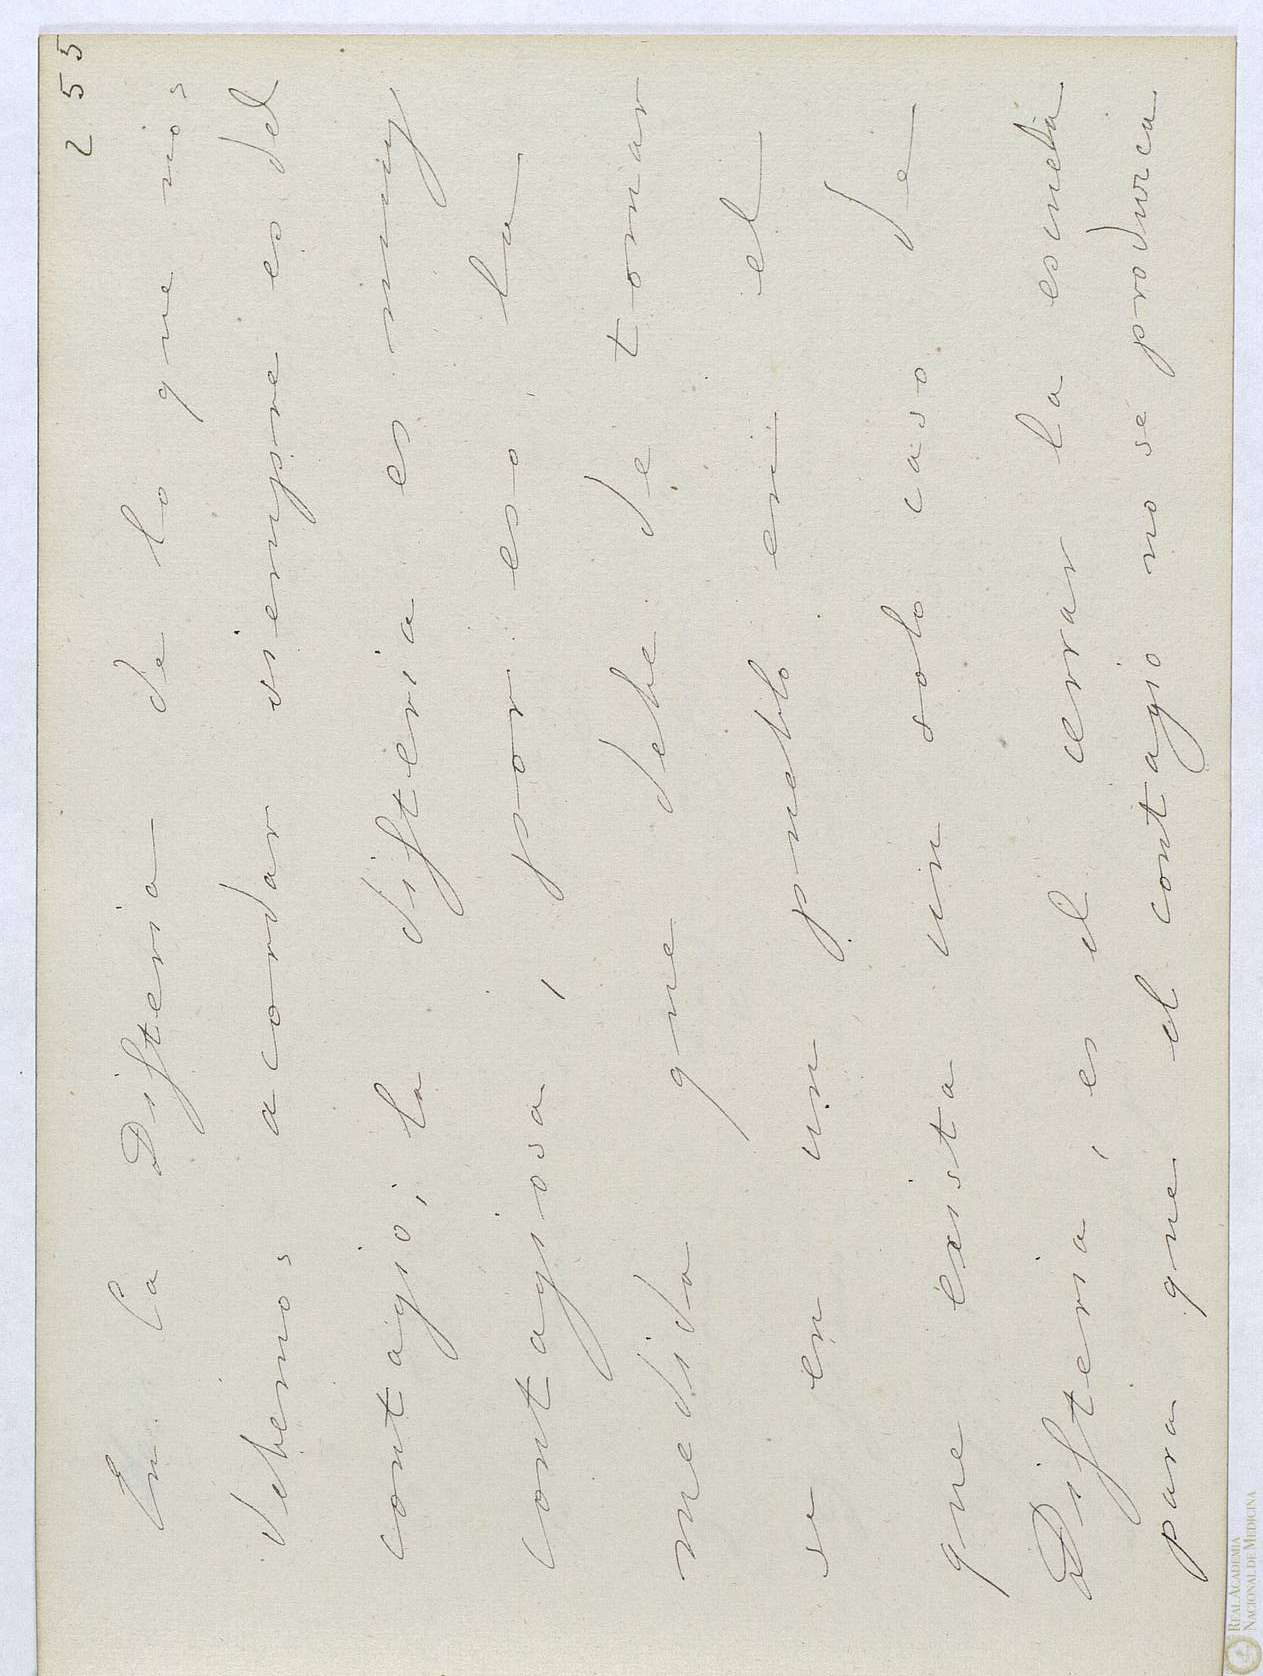 255
En la Difteria de lo que nos
debemos acordar siempre es del
contagio; la difteria es muy
contagiosa, por eso, la
medida que debe de tomar
se en un pueblo en el
que exista un solo caso de
Difteria, es el cerrar la escuela
para que el contagio no se produzca
REAL ACADEMIA
NACIONAL DE MEDICINA